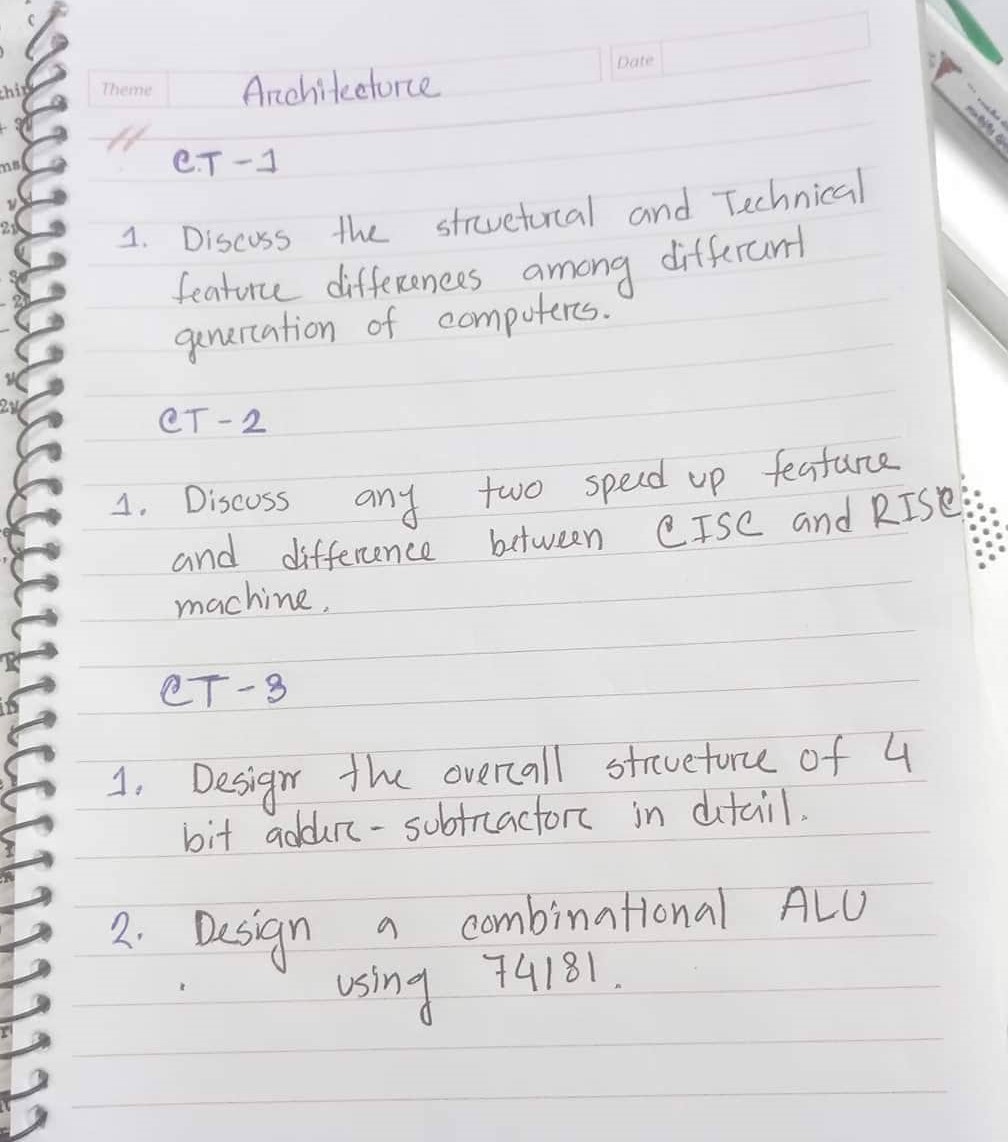 Theme
Architecture
Date
C.T - 1
1. Discuss the structural and Technical
feature differences among different
generation of computers.
CT - 2
1. Discuss any two speed up feature
and difference between CISC and RISC
machine.
CT - 3
1. Design the overall structure of 4
bit adder - subtractor in detail.
2. Design a combinational ALU
using 74181.